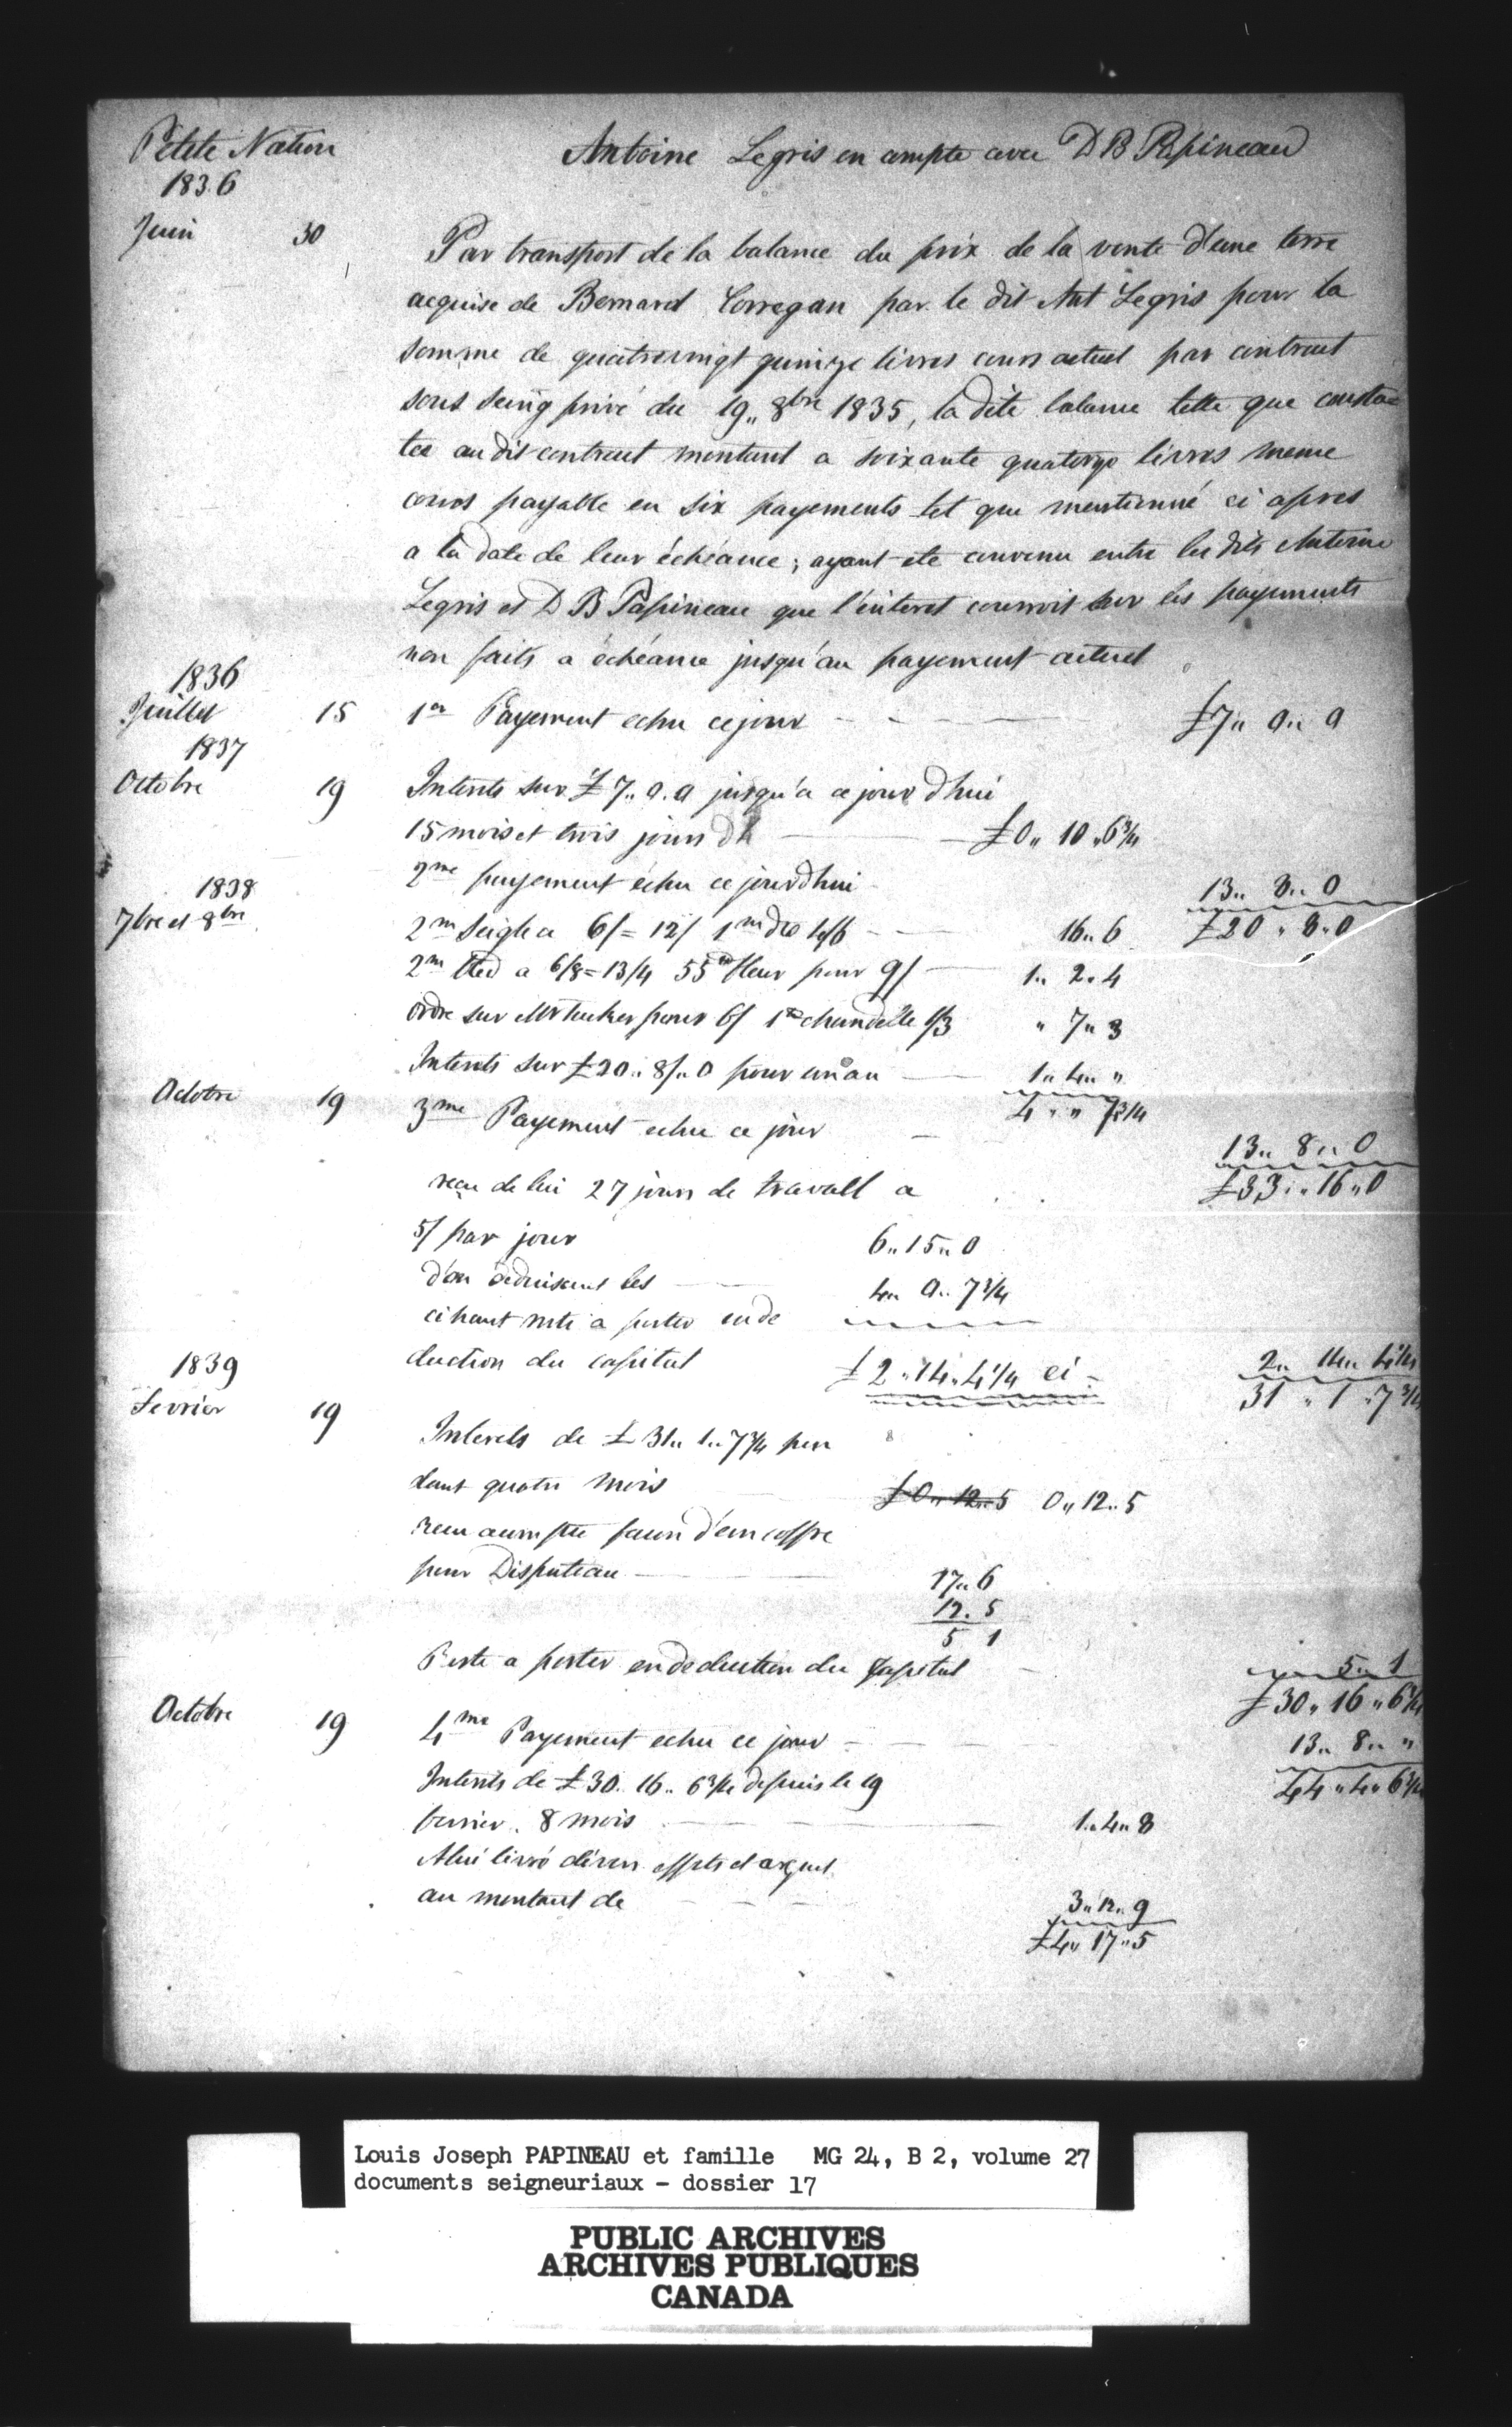 Petite Nation Antoine Legris en compte avec D B Papineau
1836
Juin 30 Par transport de la balance du prix de la vente d'une terre
acquise de Bernard Corregan par le dit Ant Legris pour la
somme de quatrevingt quinze livres cours actuel par contract
sous seing privé du 19,, 8bre 1835, la dite balance telle que consta=
tee au dit contract montant a soixante quatorze livres meme
cours payable en six payements tel que mentionné ci apres
a la date de leur échéance; ayant ete convenu entre les dits Antoine
Legris et D B Papineau que l'interet courroit sur les payements
non faits a échéance jusqu'au payement actuel
1836
Juillet 15 1er Payement echu ce jour £7,, 0,, 0
1837
Octobre 19 Interets sur £7,, 0. 0 jusqu'a ce jour d'hui
15 mois et trois jours £0,, 10,, 6 3/4
2me payement échu ce jourd'hui 13,, 8,, 0
1838 £20,, 8,, 0
7bre et 8bre 2m Seigle a 6/ = 12/ 1m do 4/6 16,, 6
2m Bled a 6/8 = 13/4 55 fleur pour 9/ 1,, 2,, 4
ordre sur Mr Tucker pour 6/ 1 chandelle 1/3 ,, 7,, 3
Interets sur £20,, 8/,, 0 pour un an 1,, 4,, ,,
4,, ,, 7 3/4
Octobre 19 3me Payement echu ce jour 13,, 8,, 0
£33,, 16,, 0
reçu de lui 27 jours de travail a
5/ par jour 6,, 15,, 0
d'ou deduisant les 4,, 0,, 7 3/4
ci haut reste a porter en de
duction du capital £2,, 14,, 4 1/4 ci 2,, 14,, 4 1/4
1839 31,, 1,, 7 3/4
Fevrier 19 Interets de £31,, 1,, 7 3/4 pen
dant quatre mois £0,, 12,, 5 0,, 12,, 5
recu acompte façon d'un coffre
pour Disputeau 17,, 6
12. 5
5 1
Reste a porter en deduction du Capital 5,, 1
£30,, 16,, 6 3/4
Octobre 19 4me Payement echu ce jour 13,, 8,, ,,
44,, 4,, 6 3/4
Interets de £30. 16,, 6 3/4 depuis le 19
fevrier. 8 mois 1,, 4,, 8
A lui livré divers effets et argent
au montant de 3,, 12,, 9
£4,, 17,, 5
Louis Joseph PAPINEAU et famille MG 24, B 2, volume 27
documents seigneuriaux - dossier 17
PUBLIC ARCHIVES
ARCHIVES PUBLIQUES
CANADA